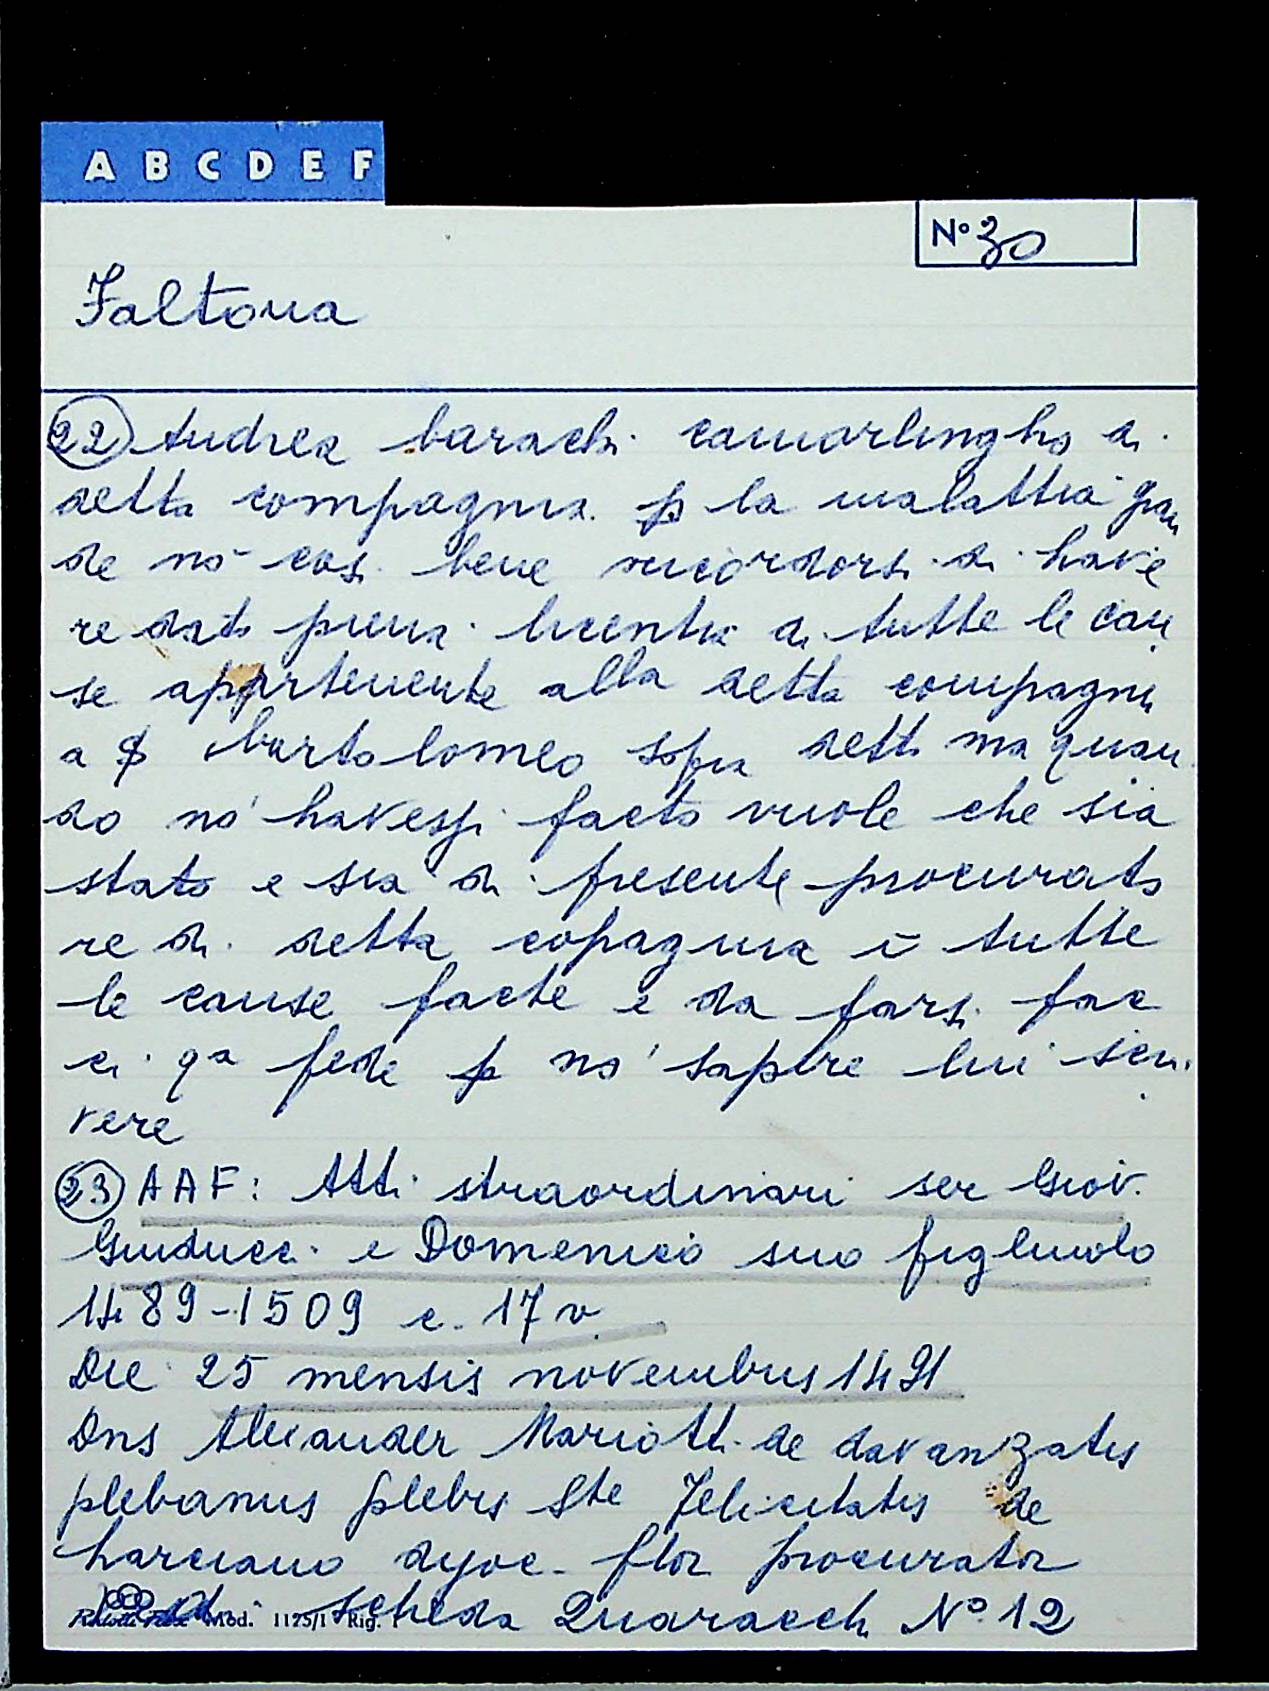 A B C D E F
N° 30
Faltona
(22) Andrea barachi camarlingho di
detta compagnia p la malattia gran
de nō così bene ricordarsi di have
re dato piena licentia di tutte le cau
se appartenente alla detta compagni
a a bartolomeo sopra detto ma quan
do nō havessi facto vuole che sia
stato e sia di presente procurato
re di detta cōpagnia ī tutte
le cause facte e da farsi fac
ci qa fede p nō sapere lui scri
vere
(23) AAF: Atti straordinari ser Giov.
Guiducci e Domenico suo figliuolo
1489-1509 c. 17v
Die 25 mensis novembris 1491
Dns Alexander Mariotti de davanzatis
plebanus plebis Ste Felicitatis de
larciano dyoc. flor procurator
scheda Quaracchi N° 12
Mod. 1125/1 Rig.